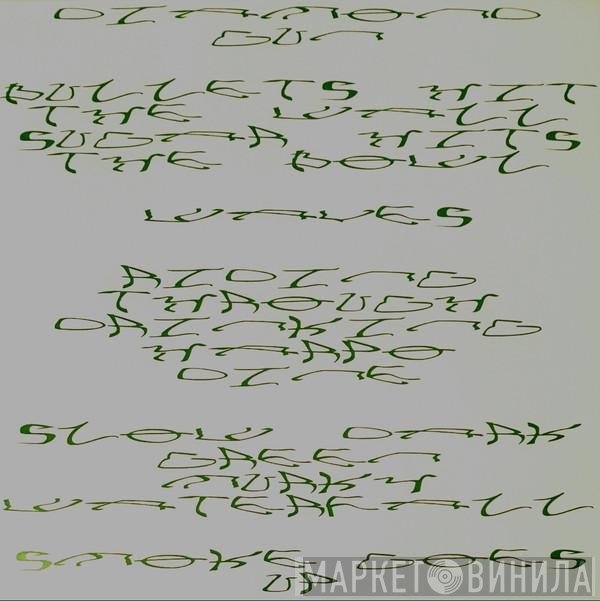 DIAMOND
GUN
BULLETS HIT
THE WALL
SUGAR HITS
THE BOWL
WAVES
RIDING
THROUGH
DRINKING
HARPO
DINE
SLOW DARK
GREEN
MURKY
WATERFALL
SMOKE GOES
UP
МАРКЕТ ВИНИЛА